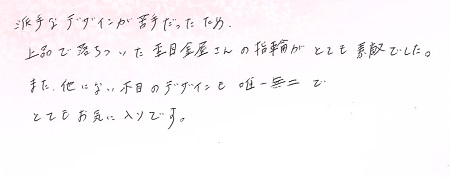 派手なデザインが苦手だったため、
上品で落ちついた杢目金屋さんの指輪がとても素敵でした。
また、他にない木目のデザインも唯一無二で
とてもお気に入りです。